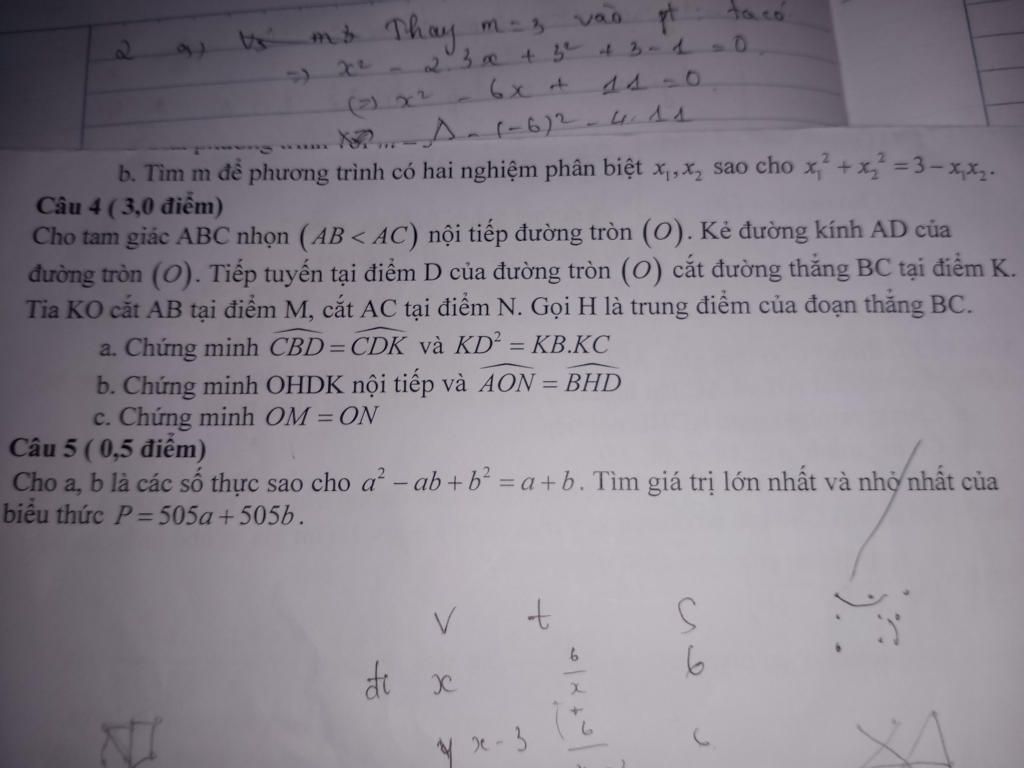 2 a, Thay m = 3 vào pt ta có
=> x² - 2.3x + 3² + 3 - 1 = 0
(=) x² - 6x + 11 = 0
Δ = (-6)² - 4.11
b. Tìm m để phương trình có hai nghiệm phân biệt x₁, x₂ sao cho x₁² + x₂² = 3 - x₁x₂.
Câu 4 ( 3,0 điểm)
Cho tam giác ABC nhọn (AB < AC) nội tiếp đường tròn (O). Kẻ đường kính AD của
đường tròn (O). Tiếp tuyến tại điểm D của đường tròn (O) cắt đường thẳng BC tại điểm K.
Tia KO cắt AB tại điểm M, cắt AC tại điểm N. Gọi H là trung điểm của đoạn thẳng BC.
a. Chứng minh CBD = CDK và KD² = KB.KC
b. Chứng minh OHDK nội tiếp và AON = BHD
c. Chứng minh OM = ON
Câu 5 ( 0,5 điểm)
Cho a, b là các số thực sao cho a² - ab + b² = a + b. Tìm giá trị lớn nhất và nhỏ nhất của
biểu thức P = 505a + 505b.
v t S
x 6/x 6
x - 3 6